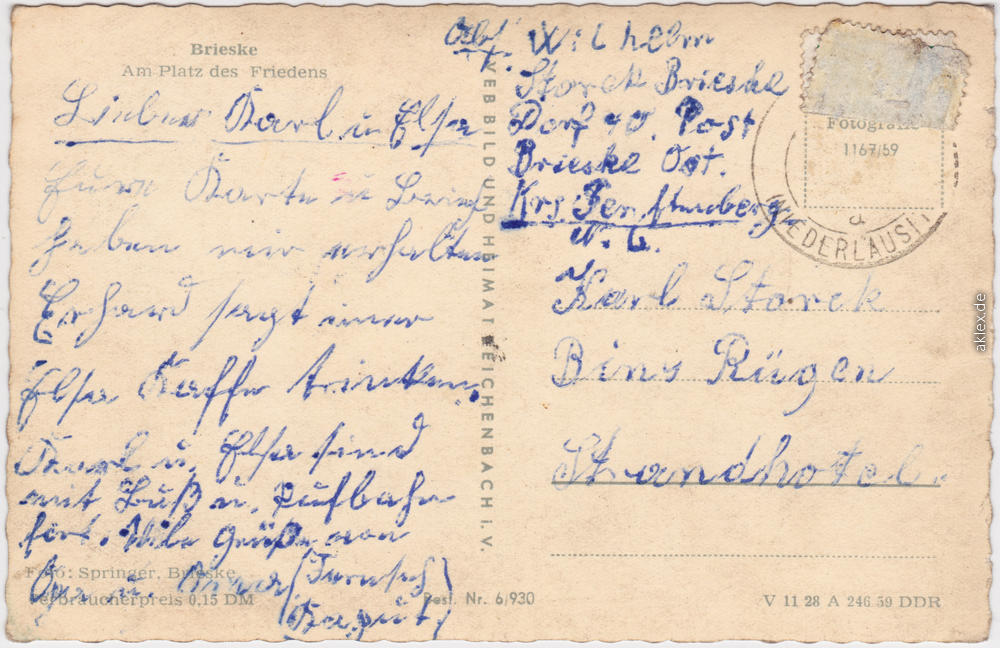 Brieske
Am Platz des Friedens
Lieber Karl u Elsa
Eure Karte u Brief
haben wir erhalten
Erhard sagt immer
Elsa Kaffe trinken.
Karl u. Elsa sind
mit Buß u. Pufbahn
fort. Viele Grüße von
Opa u. (Fernseh
Kaput)
Foto: Springer, Brieske
Verbraucherpreis 0,15 DM
Best. Nr. 6/930
VEB BILD UND HEIMAT REICHENBACH i. V.
Abs. Wilhelm
Storck Brieske
Dorf 40. Post
Brieske Ost.
Krs Senftenberg
N. L.
Karl Storck
Bins Rügen
Strandhotel.
V 11 28 A 246 59 DDR
Fotografie
1167/59
a
(NIEDERLAUSI
aklex.de